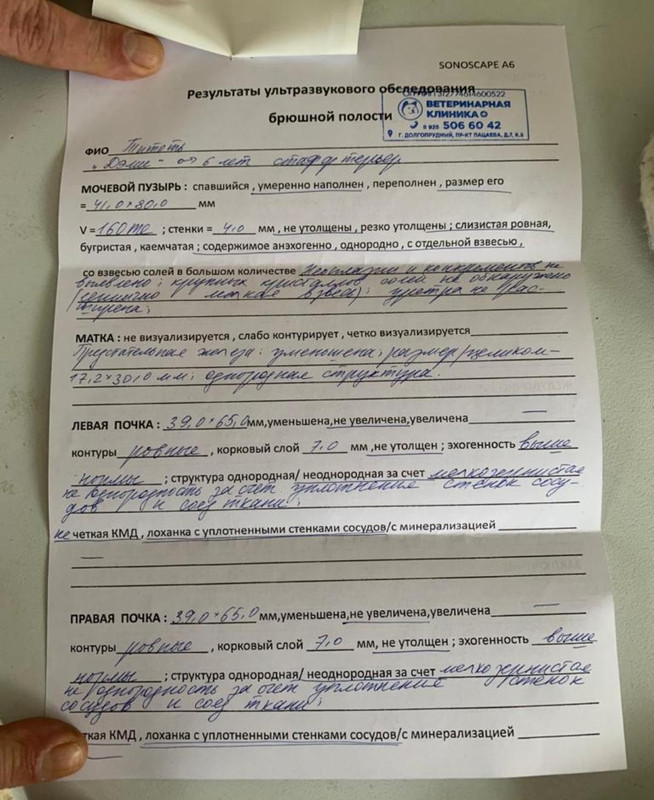 SONOSCAPE A6
Результаты ультразвукового обследования
брюшной полости
ВЕТЕРИНАРНАЯ
КЛИНИКА
506 60 42
Г. ДОЛГОПРУДНЫЙ, ПР-КТ ПАЦАЕВА, Д.7, К.8
ФИО
6 лет стафф терьер
МОЧЕВОЙ ПУЗЫРЬ : спавшийся , умеренно наполнен , переполнен , размер его
= 41,0×80,0 мм
V = ; стенки = 4,0 мм , не утолщены , резко утолщены ; слизистая ровная,
бугристая , каемчатая ; содержимое анэхогенно , однородно , с отдельной взвесью ,
со взвесью солей в большом количестве Неоплазии и конкрементов не
выявлено ; крупных кристаллов солей не обнаружено
мелкая взвесь) ; уретра не рас-
ширена ;
МАТКА : не визуализируется , слабо контурирует , четко визуализируется
Предстательная железа : уменьшена ; размер
17,2×30,0 мм ; однородная структура.
ЛЕВАЯ ПОЧКА : 39,0×65,0 мм,уменьшена,не увеличена,увеличена
контуры ровные , корковый слой 7,0 мм ,не утолщен ; эхогенность выше
нормы ; структура однородная/ неоднородная за счет мелкозернистая
неоднородность за счет уплотнения стенок сосу-
дов и соед ткани ;
не четкая КМД , лоханка с уплотненными стенками сосудов/с минерализацией
ПРАВАЯ ПОЧКА : 39,0×65,0 мм,уменьшена,не увеличена,увеличена
контуры ровные , корковый слой 7,0 мм, не утолщен ; эхогенность выше
нормы ; структура однородная/ неоднородная за счет мелкозернистая
неоднородность за счет уплотнения стенок
сосудов и соед ткани ;
КМД , лоханка с уплотненными стенками сосудов/с минерализацией